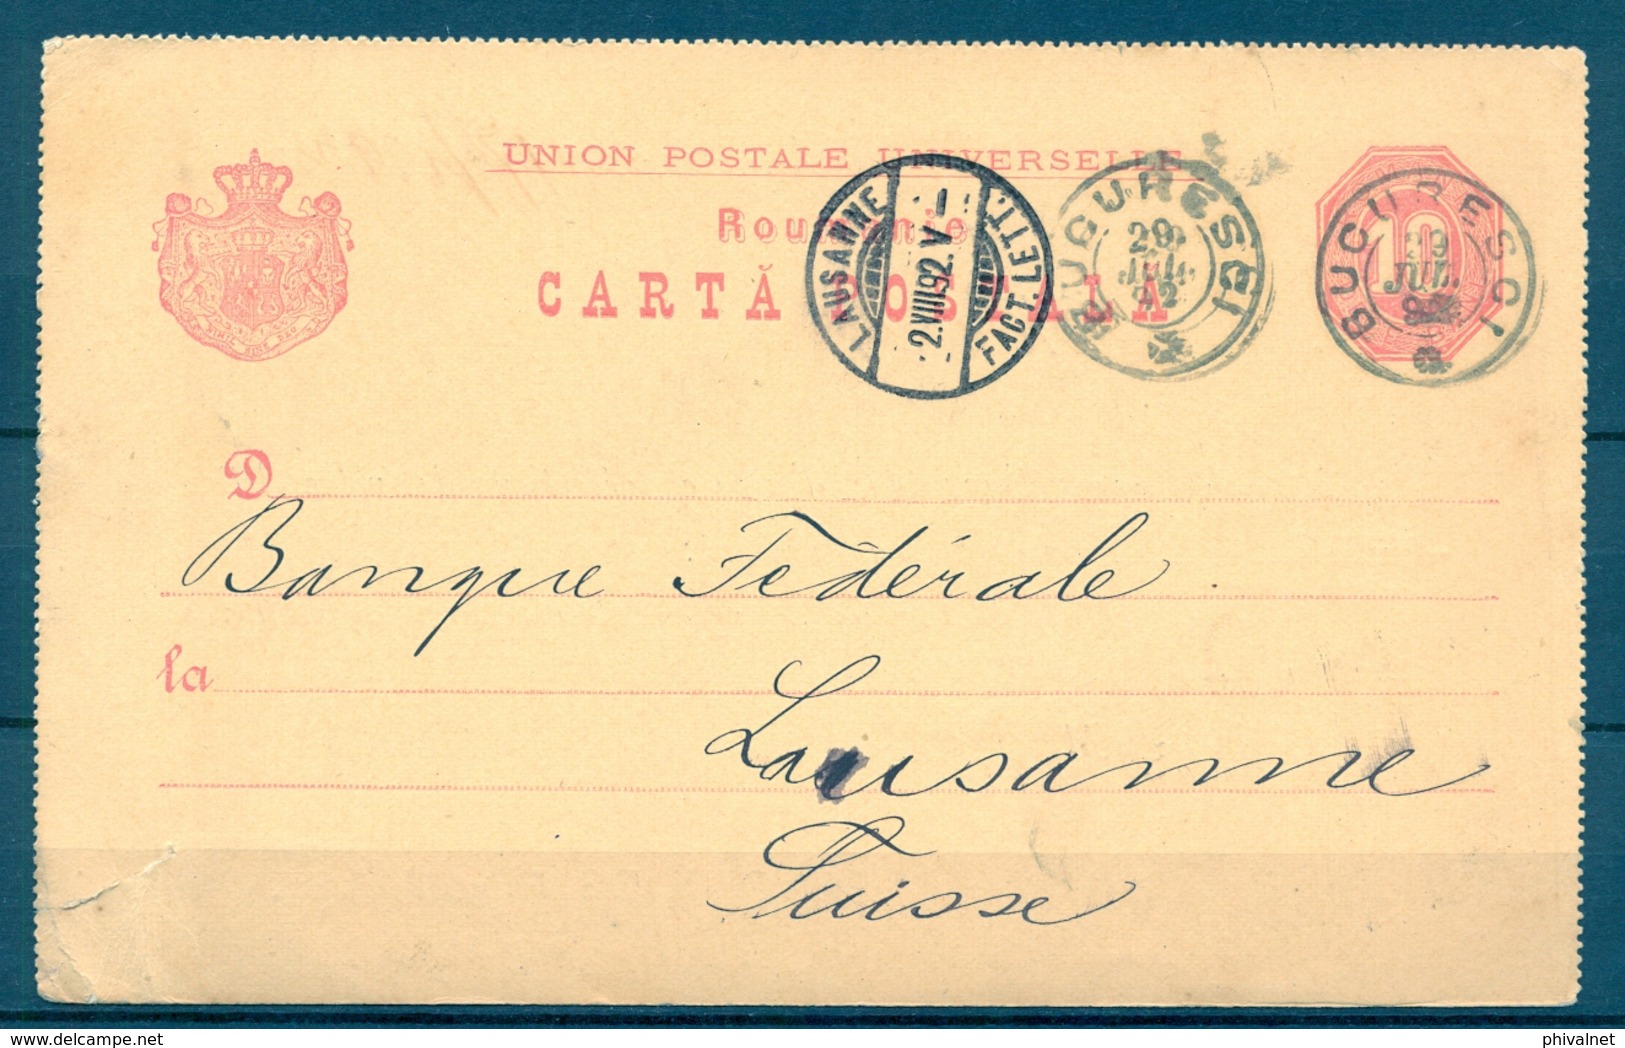 UNION POSTALE UNIVERSELLE
Roumanie
CARTĂ POSTALĂ
LAUSANNE
2.VIII.92.V-
FACT. LETT.
BUCURESCI
29
JUL.
92
BUCURESCI
29
JUL.
92
10
NIHIL SINE DEO
D
Banque Fédérale
la
Lausanne
Suisse
delcampe.net
phivalnet